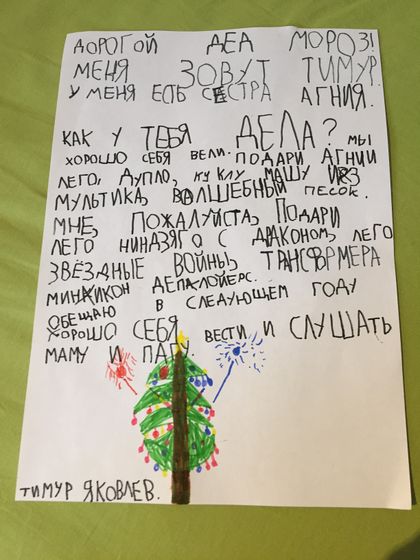 ДОРОГОЙ ДЕД МОРОЗ!
МЕНЯ ЗОВУТ ТИМУР.
У МЕНЯ ЕСТЬ СЕСТРА АГНИЯ.
КАК У ТЕБЯ ДЕЛА? МЫ
ХОРОШО СЕБЯ ВЕЛИ. ПОДАРИ АГНИИ
ЛЕГО, ДУПЛО, КУКЛУ МАШУ ИЗ
МУЛЬТИКА, ВОЛШЕБНЫЙ ПЕСОК.
МНЕ, ПОЖАЛУЙСТА, ПОДАРИ
ЛЕГО НИНДЗЯГО С ДРАКОНОМ, ЛЕГО
ЗВЁЗДНЫЕ ВОЙНЫ, ТРАНСФОРМЕРА
МИНИКОН ДЕПЛОЙЕРС.
ОБЕЩАЮ В СЛЕДУЮЩЕМ ГОДУ
ХОРОШО СЕБЯ ВЕСТИ И СЛУШАТЬ
МАМУ И ПАПУ.
ТИМУР ЯКОВЛЕВ.